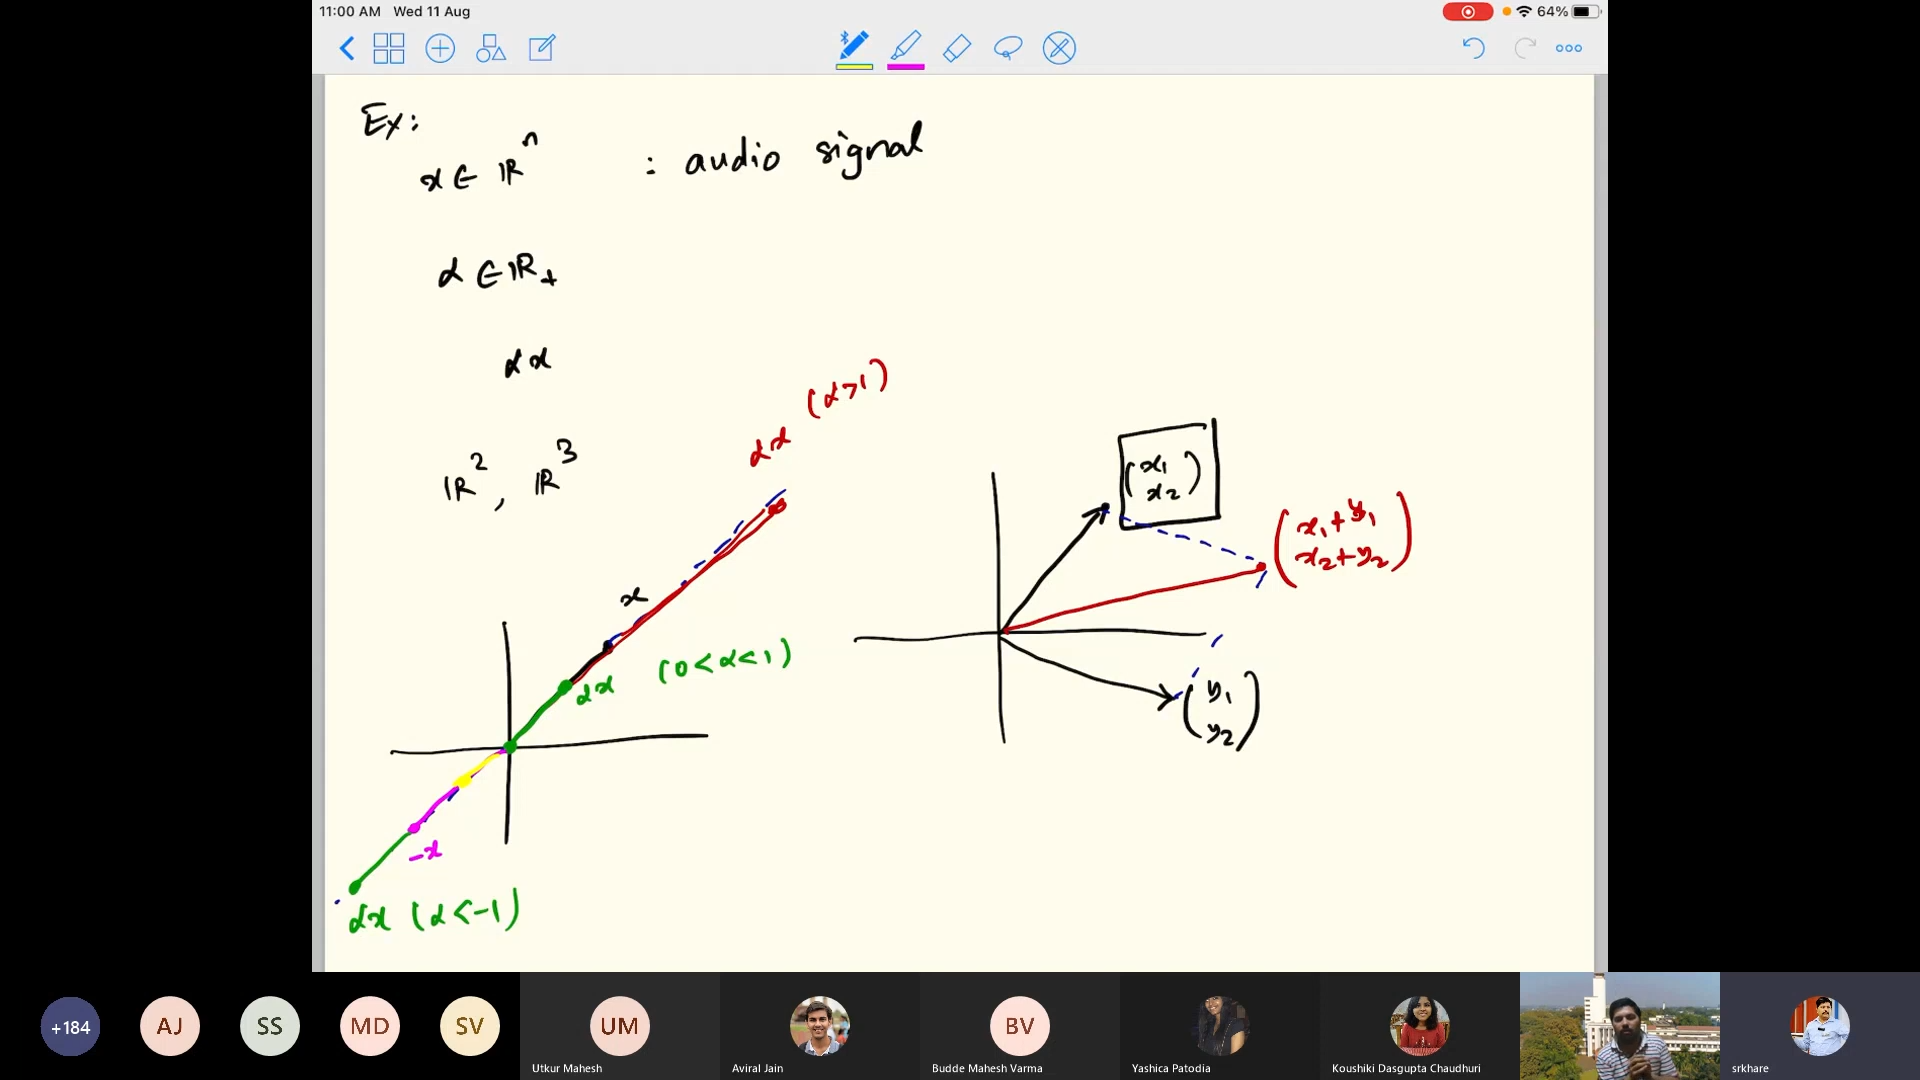 11:00 AM Wed 11 Aug
64%
Ex:
x ∈ ℝⁿ : audio signal
α ∈ ℝ₊
αx
ℝ², ℝ³
αx (α>1)
x
αx (0<α<1)
-x
αx (α<-1)
(x₁
x₂)
(x₁+y₁
x₂+y₂)
(y₁
y₂)
+184
AJ
SS
MD
SV
UM
BV
Utkur Mahesh
Aviral Jain
Budde Mahesh Varma
Yashica Patodia
Koushiki Dasgupta Chaudhuri
srkhare